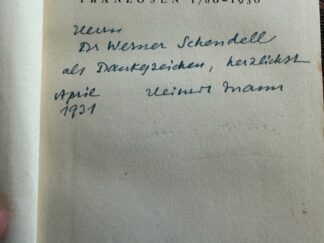 FRANZOSEN 1780-1930
Herrn
Dr Werner Schendell
als Dankzeichen, herzlichst
April Heinrich Mann
1931